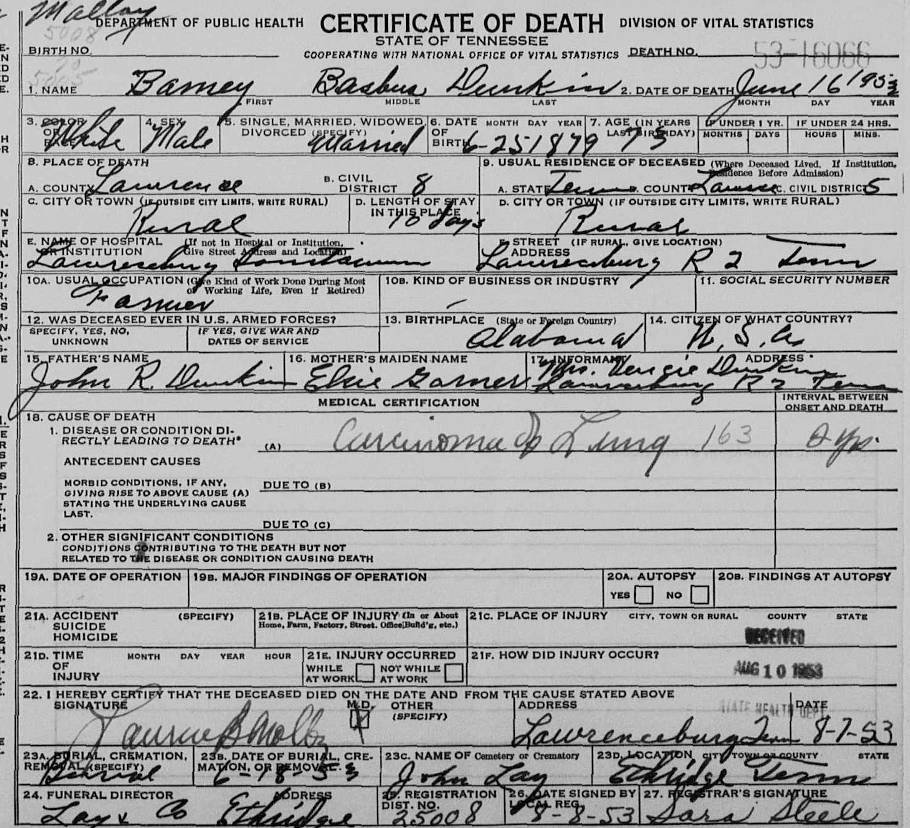 Malloy
DEPARTMENT OF PUBLIC HEALTH CERTIFICATE OF DEATH DIVISION OF VITAL STATISTICS
5008
STATE OF TENNESSEE
BIRTH NO. COOPERATING WITH NATIONAL OFFICE OF VITAL STATISTICS DEATH NO. 53-16066
1. NAME Barney Basbus Dunkin 2. DATE OF DEATH June 16 1953
FIRST MIDDLE LAST MONTH DAY YEAR
3. COLOR OR RACE White 4. SEX Male 5. SINGLE, MARRIED, WIDOWED, DIVORCED (SPECIFY) Married 6. DATE OF BIRTH MONTH DAY YEAR 6-25 1879 7. AGE (IN YEARS LAST BIRTHDAY) 73 IF UNDER 1 YR. MONTHS DAYS IF UNDER 24 HRS. HOURS MINS.
8. PLACE OF DEATH 9. USUAL RESIDENCE OF DECEASED (Where Deceased Lived, If Institution, Residence Before Admission)
A. COUNTY Lawrence B. CIVIL DISTRICT 8 A. STATE Tenn B. COUNTY Lawrence C. CIVIL DISTRICT 5
C. CITY OR TOWN (IF OUTSIDE CITY LIMITS, WRITE RURAL) Rural D. LENGTH OF STAY IN THIS PLACE 10 days D. CITY OR TOWN (IF OUTSIDE CITY LIMITS, WRITE RURAL) Rural
E. NAME OF HOSPITAL OR INSTITUTION (If not in Hospital or Institution, Give Street Address and Location) Lawrenceburg Sanitarium E. STREET ADDRESS (IF RURAL, GIVE LOCATION) Lawrenceburg R 2 Tenn
10A. USUAL OCCUPATION (Give Kind of Work Done During Most of Working Life, Even if Retired) Farmer 10B. KIND OF BUSINESS OR INDUSTRY 11. SOCIAL SECURITY NUMBER
12. WAS DECEASED EVER IN U.S. ARMED FORCES? 13. BIRTHPLACE (State or Foreign Country) Alabama 14. CITIZEN OF WHAT COUNTRY? U.S.A
SPECIFY, YES, NO, UNKNOWN IF YES, GIVE WAR AND DATES OF SERVICE
15. FATHER'S NAME John R. Dunkin 16. MOTHER'S MAIDEN NAME Elsie Garner 17. INFORMANT ADDRESS Mrs. Dunkin Lawrenceburg R 2 Tenn
MEDICAL CERTIFICATION INTERVAL BETWEEN ONSET AND DEATH
18. CAUSE OF DEATH
1. DISEASE OR CONDITION DIRECTLY LEADING TO DEATH* (A) Carcinoma of Lung 163 2 yrs.
ANTECEDENT CAUSES
MORBID CONDITIONS, IF ANY, GIVING RISE TO ABOVE CAUSE (A) STATING THE UNDERLYING CAUSE LAST. DUE TO (B)
DUE TO (C)
2. OTHER SIGNIFICANT CONDITIONS
CONDITIONS CONTRIBUTING TO THE DEATH BUT NOT
RELATED TO THE DISEASE OR CONDITION CAUSING DEATH
19A. DATE OF OPERATION 19B. MAJOR FINDINGS OF OPERATION 20A. AUTOPSY 20B. FINDINGS AT AUTOPSY
YES NO
21A. ACCIDENT SUICIDE HOMICIDE (SPECIFY) 21B. PLACE OF INJURY (In or About Home, Farm, Factory, Street, Office, Build'g, etc.) 21C. PLACE OF INJURY CITY, TOWN OR RURAL COUNTY STATE
RECEIVED
21D. TIME OF INJURY MONTH DAY YEAR HOUR 21E. INJURY OCCURRED WHILE AT WORK NOT WHILE AT WORK 21F. HOW DID INJURY OCCUR?
AUG 10 1953
22. I HEREBY CERTIFY THAT THE DECEASED DIED ON THE DATE AND FROM THE CAUSE STATED ABOVE
STATE HEALTH DEPT.
SIGNATURE M.D. X OTHER (SPECIFY) ADDRESS Lawrenceburg Tenn DATE 8-7-53
23A. BURIAL, CREMATION, REMOVAL (SPECIFY) Burial 23B. DATE OF BURIAL, CREMATION, OR REMOVAL 6-18-53 23C. NAME OF Cemetery or Crematory John Lay 23D. LOCATION CITY, TOWN OR COUNTY STATE Ethridge Tenn
24. FUNERAL DIRECTOR ADDRESS Lay & Co Ethridge 25. REGISTRATION DIST. NO. 25008 26. DATE SIGNED BY LOCAL REG. 8-8-53 27. REGISTRAR'S SIGNATURE Sara Steele